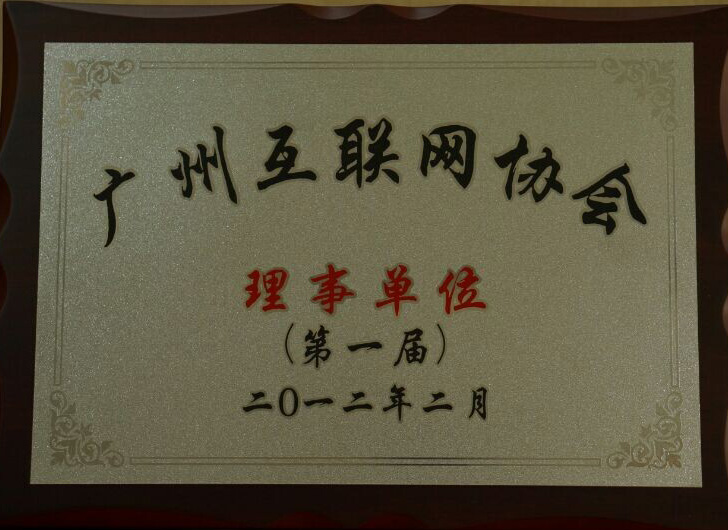 广州互联网协会
理事单位
（第一届）
二〇一二年二月